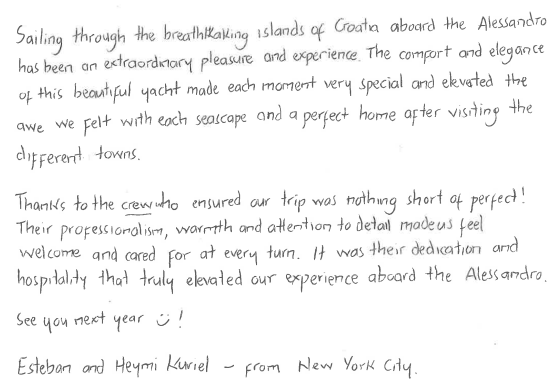 Sailing through the breathtaking islands of Croatia aboard the Alessandro
has been an extraordinary pleasure and experience. The comfort and elegance
of this beautiful yacht made each moment very special and elevated the
awe we felt with each seascape and a perfect home after visiting the
different towns.
Thanks to the crew who ensured our trip was nothing short of perfect!
Their professionalism, warmth and attention to detail made us feel
welcome and cared for at every turn. It was their dedication and
hospitality that truly elevated our experience aboard the Alessandro.
See you next year ☺!
Esteban and Heymi Kuriel – from New York City.